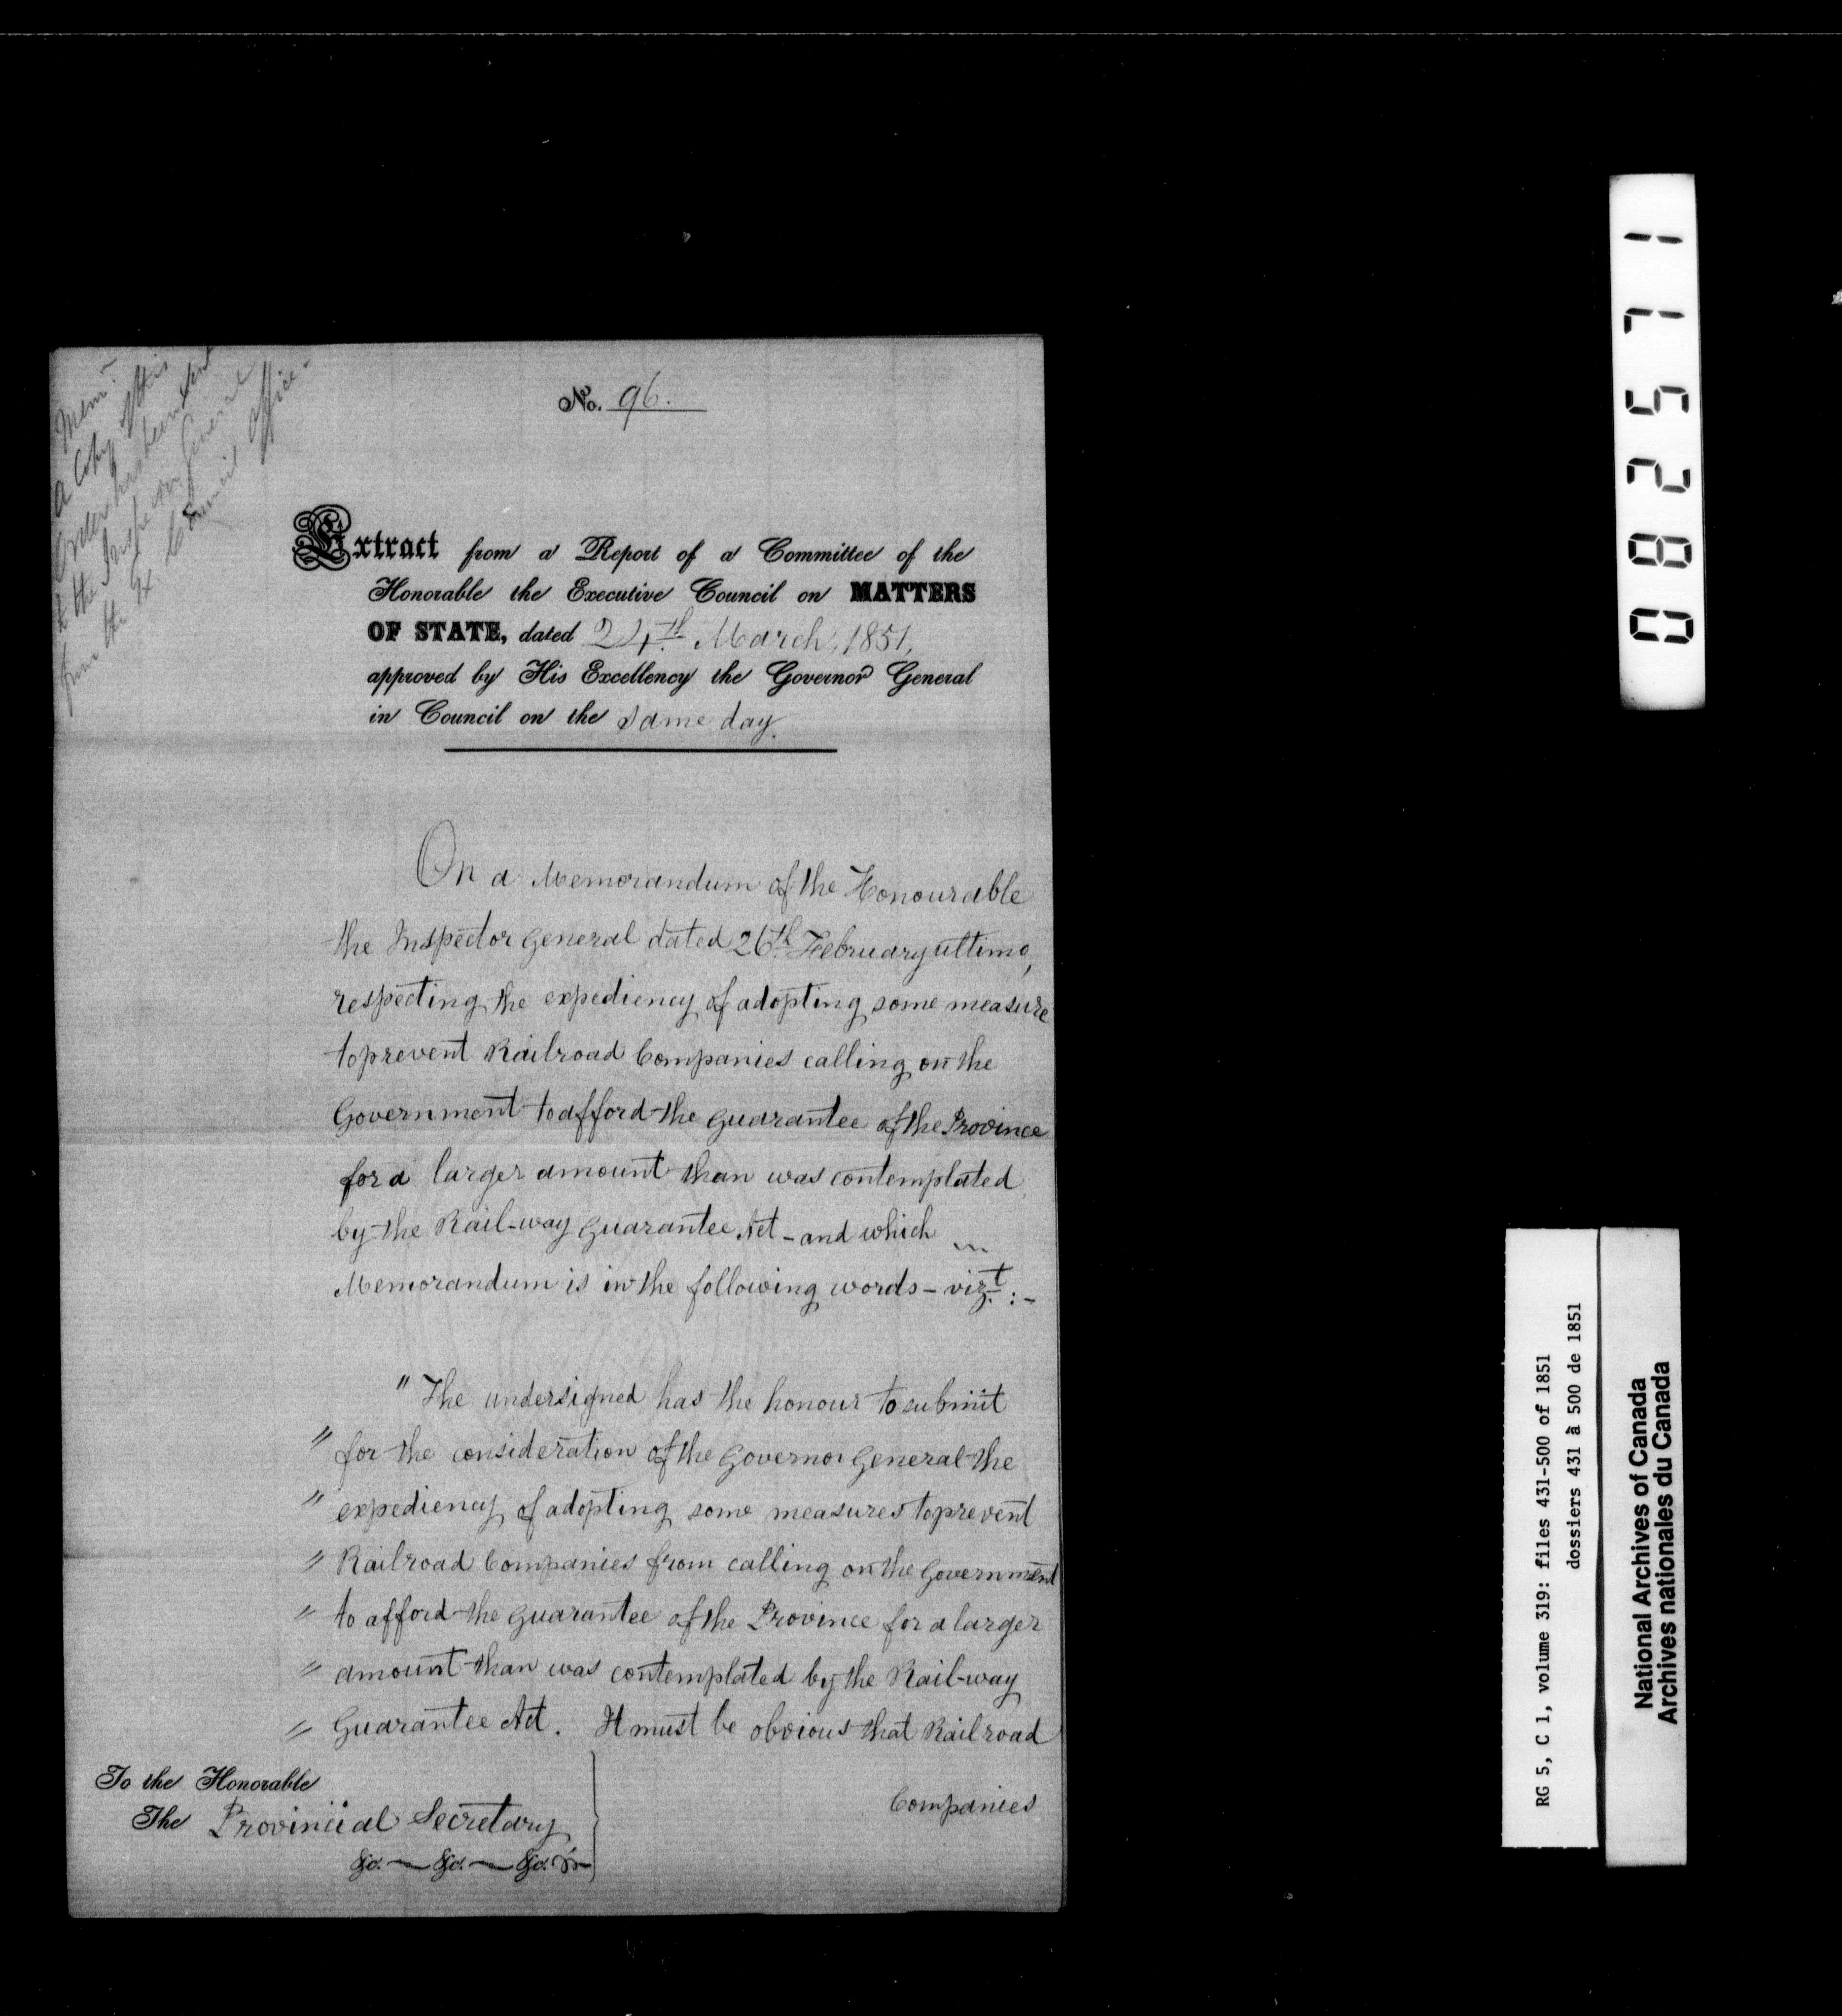 Mem:-
A Copy of this
Order has been sent
to the Inspector General
from the Ex. Council Office-
No. 96.
Extract from a Report of a Committee of the
Honorable the Executive Council on MATTERS
OF STATE, dated 24th March, 1851,
approved by His Excellency the Governor General
in Council on the same day.
On a Memorandum of the Honourable
the Inspector General dated 26th February ultimo,
respecting the expediency of adopting some measure
to prevent Railroad Companies calling on the
Government to afford the guarantee of the Province
for a larger amount than was contemplated
by the Rail-way Guarantee Act - and which
Memorandum is in the following words - vizt:-
"The undersigned has the honour to submit
" for the consideration of the Governor General the
" expediency of adopting some measures to prevent
" Railroad Companies from calling on the Government
" to afford the guarantee of the Province for a larger
" amount than was contemplated by the Rail-way
" Guarantee Act. It must be obvious that Railroad
Companies
To the Honorable
The Provincial Secretary
&c. &c. &c.
082571
RG 5, C 1, volume 319: files 431-500 of 1851
dossiers 431 à 500 de 1851
National Archives of Canada
Archives nationales du Canada